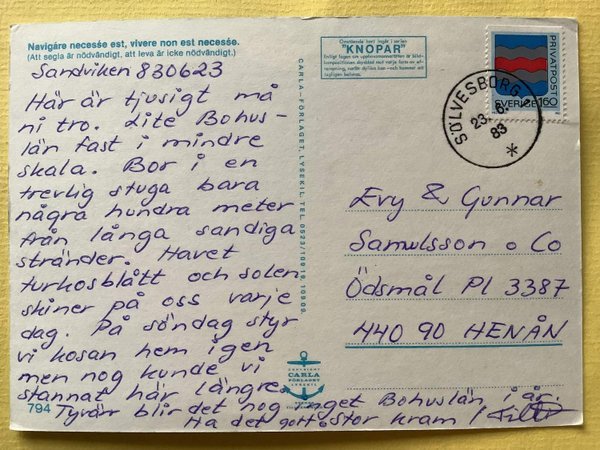 Navigare necesse est, vivere non est necesse.
(Att segla är nödvändigt, att leva är icke nödvändigt.)
Sandviken 830623
Här är tjusigt må
ni tro. Lite Bohus-
län fast i mindre
skala. Bor i en
trevlig stuga bara
några hundra meter
från långa sandiga
stränder. Havet
turkosblått och solen
skiner på oss varje
dag. På söndag styr
vi kosan hem igen
men nog kunde vi
stannat här längre.
Tyvärr blir det nog inget Bohuslän i år.
Ha det gott. Stor kram /
794
CARLA-FÖRLAGET, LYSEKIL TEL. 0523/10919 10909.
COPYRIGHT
CARLA
FÖRLAGET
LYSEKIL
Omstående kort ingår i serien
"KNOPAR"
SÖLVESBORG
23.6.
83
PRIVATPOST
SVERIGE 160
Evy & Gunnar
Samulsson o Co
Ödsmål Pl 3387
440 90 HENÅN